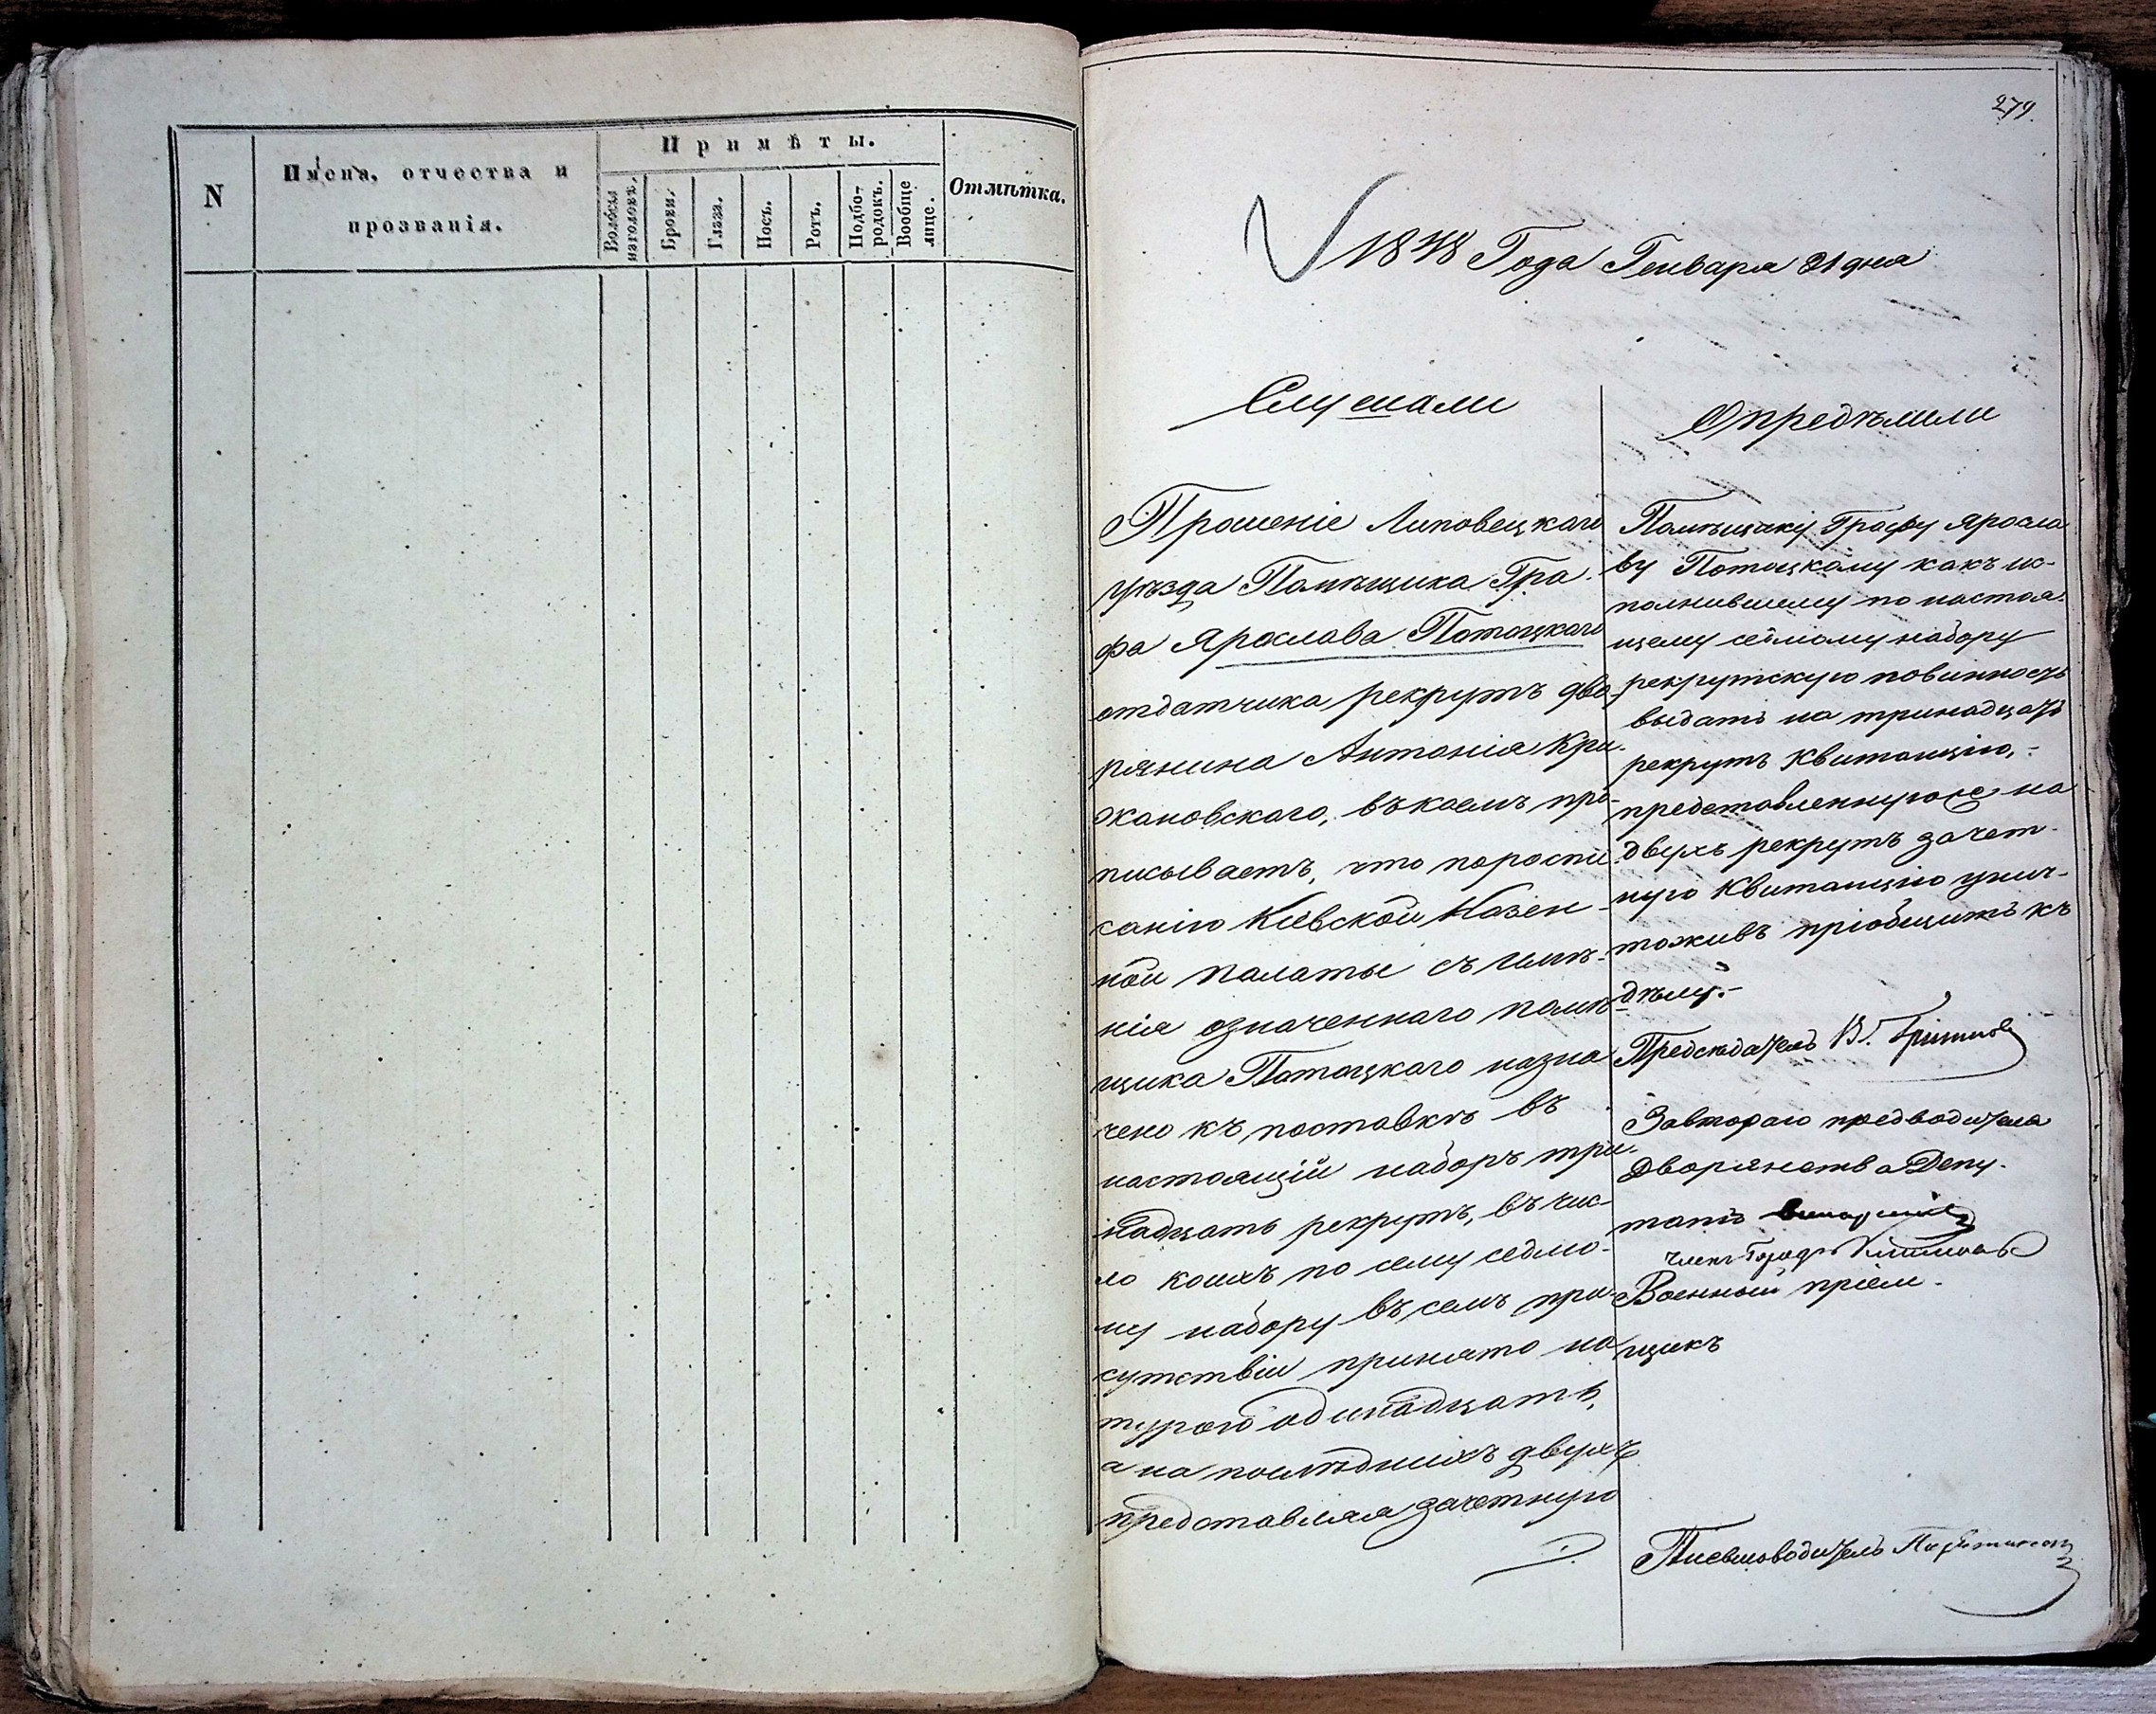 N
Имена, отчества и
прозванія.
Примѣты.
Волосы
на головѣ.
Брови.
Глаза.
Носъ.
Ротъ.
Подбо-
родокъ.
Вообще
лице.
Отмѣтка.
279.
1848 Года Генваря 21 дня
Слушали
Прошеніе Липовецкаго
уѣзда Помѣщика Гра-
фа Ярослава Потоцкаго
отдатчика рекрутъ дво-
рянина Антонія Кри-
жановскаго, въ коемъ про-
писываетъ, что по роспи-
санію Кіевской Казен-
ной палаты съ имѣ-
нія означеннаго помѣ-
щика Потоцкаго назна
чено къ поставкѣ въ
настоящій наборъ три-
надцать рекрутъ, въ чис-
ло коихъ по сему седмо-
му набору въ семъ при-
сутствіи принято на
турою одинадцать,
а на послѣднихъ двухъ
представляя зачетную
Опредѣлили
Помѣщику Графу Яросла
ву Потоцкому какъ ис-
полнившему по настоя-
щему седмому набору
рекрутскую повинность
выдать на тринадцать
рекрутъ Квитанцію,-
представленную же на
двухъ рекрутъ зачет-
ную Квитанцію унич-
тоживъ пріобщить къ
дѣлу.-
Предсѣдатель В.
За втораго предводителя
Дворянства Депу-
татъ
Членъ Город.
Военный пріем-
щикъ
Письмоводитель